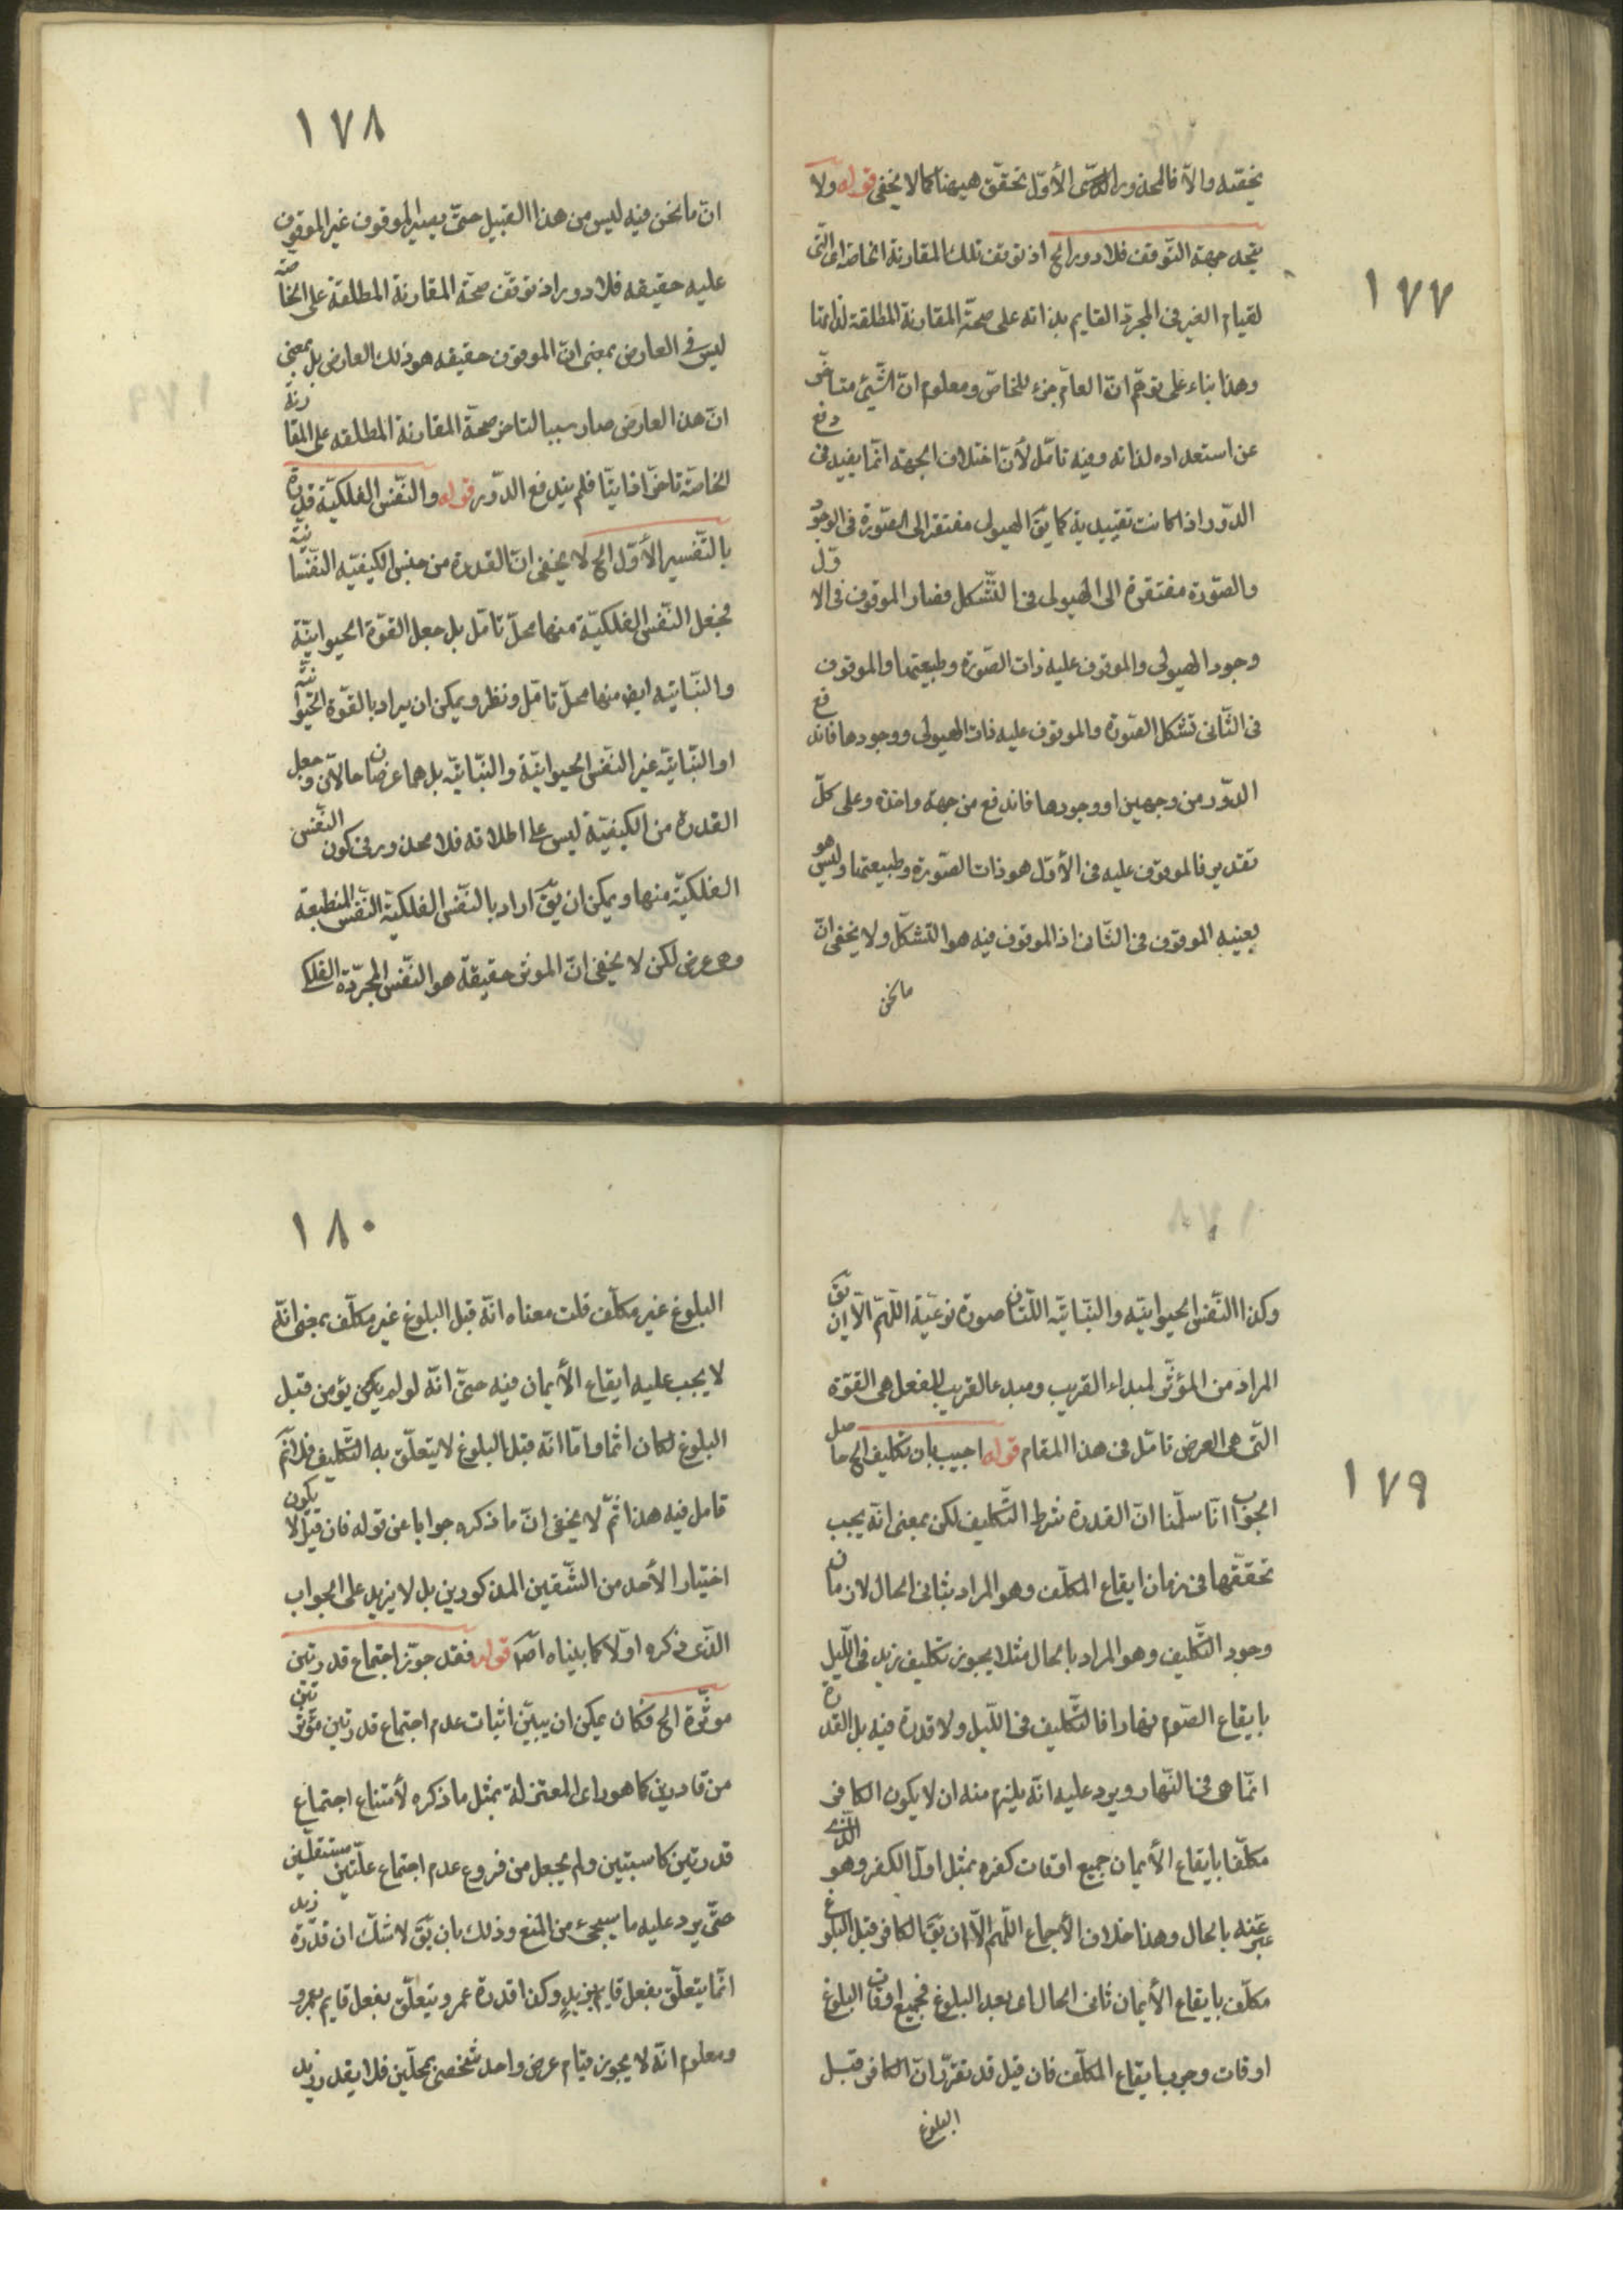 ١٧٧
يخفيه والا فالمحذور الأول تحقق هيهنا كما لا يخفى قوله ولا
يتجه جهة التوقف فلا دور الخ اذ توقف تلك المقارنة الخاصة اى التى
لقيام الغير فى المجرد القايم بذاته على صحة المقارنة المطلقة لذاتها
وهذا بناء على توهم ان العام جزء للخاص ومعلوم ان الشيئ متاخر
عن استعداده لذاته وفيه تامل لأن اختلاف الجهة انما يفيد فى دفع
الدور اذا كانت تقييدية كما يق الهيولى مفتقر الى الصورة فى الوجود
والصورة مفتقرة الى الهيولى فى التشكل فصار الموقوف فى الاول
وجود الهيولى والموقوف عليه ذات الصورة وطبيعتها والموقوف
فى الثانى تشكل الصورة والموقوف عليه ذات الهيولى ووجودها فاندفع
الدور من وجهين او وجودها فاندفع من جهة واحدة وعلى كل
تقدير فالموقوف عليه فى الأول هو ذات الصورة وطبيعتها وليس هو
بعينيه الموقوف فى الثانى اذ الموقوف فيه هو التشكل ولا يخفى ان
ما نحن
١٧٨
ان ما نحن فيه ليس من هذا القبيل حتى يصير الموقوف غير الموقوف
عليه حقيقه فلا دور اذ توقف صحة المقارنة المطلقة على الخاصة
ليس فى العارض بمعنى ان الموقوف حقيقه هو ذلك العارض بل بمعنى
ان هذا العارض صار سببا لتاخر صحة المقارنة المطلقه على المقارنة
الخاصة تاخرا ذاتيا فلم يندفع الدور قوله والنفس الفلكية قدرة
بالتفسير الأول الخ لا يخفى ان القدرة من جنس الكيفيه النفسانية
فجعل النفس الفلكية منها محل تامل بل جعل القوة الحيوانية
والنباتيه ايض منها محل تامل ونظر ويمكن ان يراد بالقوة الحيوانية
او النباتية غير النفس الحيوانية والنباتية بل هما عرضان حالان وجعل
القدرة من الكيفية ليس على اطلاقه فلا محذور فى كون النفس
الفلكية منها ويمكن ان يق اراد بالنفس الفلكية النفس المنطبعة
وهى عرض لكن لا يخفى ان الموثر حقيقة هو النفس المجردة الفلكى
١٧٩
وكذا النفس الحيوانيه والنباتيه اللتان صورة نوعية اللهم الا ان يق
المراد من المؤثر المبداء القريب ومبدء القريب للفعل هى القوة
التى هى العرض تامل فى هذا المقام قوله اجيب بان تكليف الخ حاصل
الجواب انا سلمنا ان القدرة شرط التكليف لكن بمعنى انه يجب
تحققها فى زمان ايقاع المكلف وهو المراد بثانى الحال لا زمان
وجود التكليف وهو المراد بالحال مثلا يجوز تكليف زيد فى الليل
بايقاع الصوم نهارا فالتكليف فى الليل ولا قدرة فيه بل القدرة
انما هى فى النهار ويرد عليه انه يلزم منه ان لا يكون الكافر
مكلفا بايقاع الأيمان جميع اوقات كفره بمثل اول الكفر وهو الذى
عبر عنه بالحال وهذا خلاف الأجماع اللهم الا ان يق الكافر قبل البلوغ
مكلف بايقاع الأيمان ثانى الحال اى بعد البلوغ فجميع اوقات البلوغ
اوقات وجوب ايقاع المكلف فان قيل قد تقرر ان الكافر قبل
البلوغ
١٨٠
البلوغ غير مكلف قلت معناه انه قبل البلوغ غير مكلف بمعنى انه
لا يجب عليه ايقاع الأيمان فيه حتى انه لو لم يكن يؤمن قبل
البلوغ لكان اثما واما انه قبل البلوغ لا يتعلق به التكليف فلا نم
تامل فيه هذا ثم لا يخفى ان ما ذكره جوابا عن قوله فان قيل لا يكون
اختيار الأحد من الشقين المذكورين بل لا يزيد على الجواب
الذى ذكره اولا كما بيناه قوله فقد جوز اجتماع قدرتين
موثرة الخ فكان يمكن ان يبين اثبات عدم اجتماع قدرتين مؤثرتين
من قادرين كما هو راى المعتزلة بمثل ما ذكره لأمتناع اجتماع
قدرتين كاسبتين ولم يجعل من فروع عدم اجتماع علتين مستقلتين
حتى يرد عليه ما سيجئ من المنع وذلك بان يق لا شك ان قدرة زيد
انما يتعلق بفعل قايم بزيد وكذا قدرة عمرو يتعلق بفعل قايم بعمرو
ومعلوم انه لا يجوز قيام عرض واحد شخصى بمحلين فلا يقدر زيد